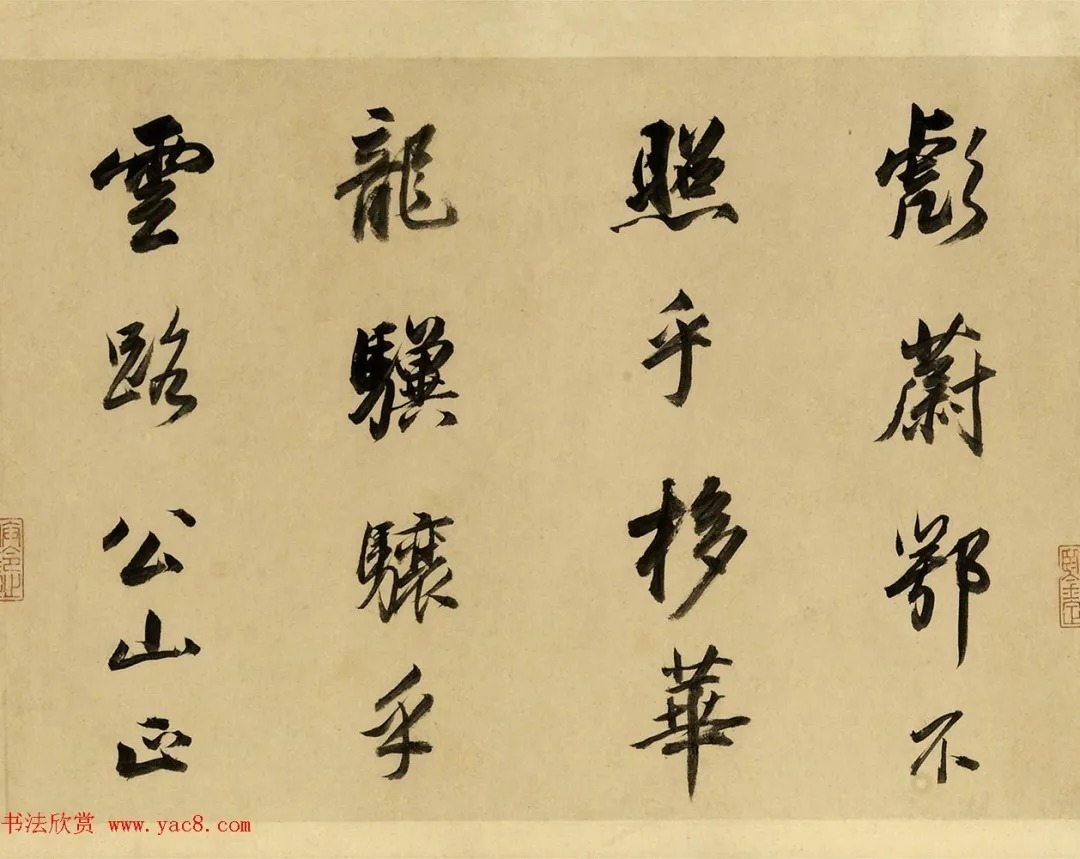 彪蔚鄂不
照乎栘華
龍驥驤乎
雲路公山正
书法欣赏 www.yac8.com